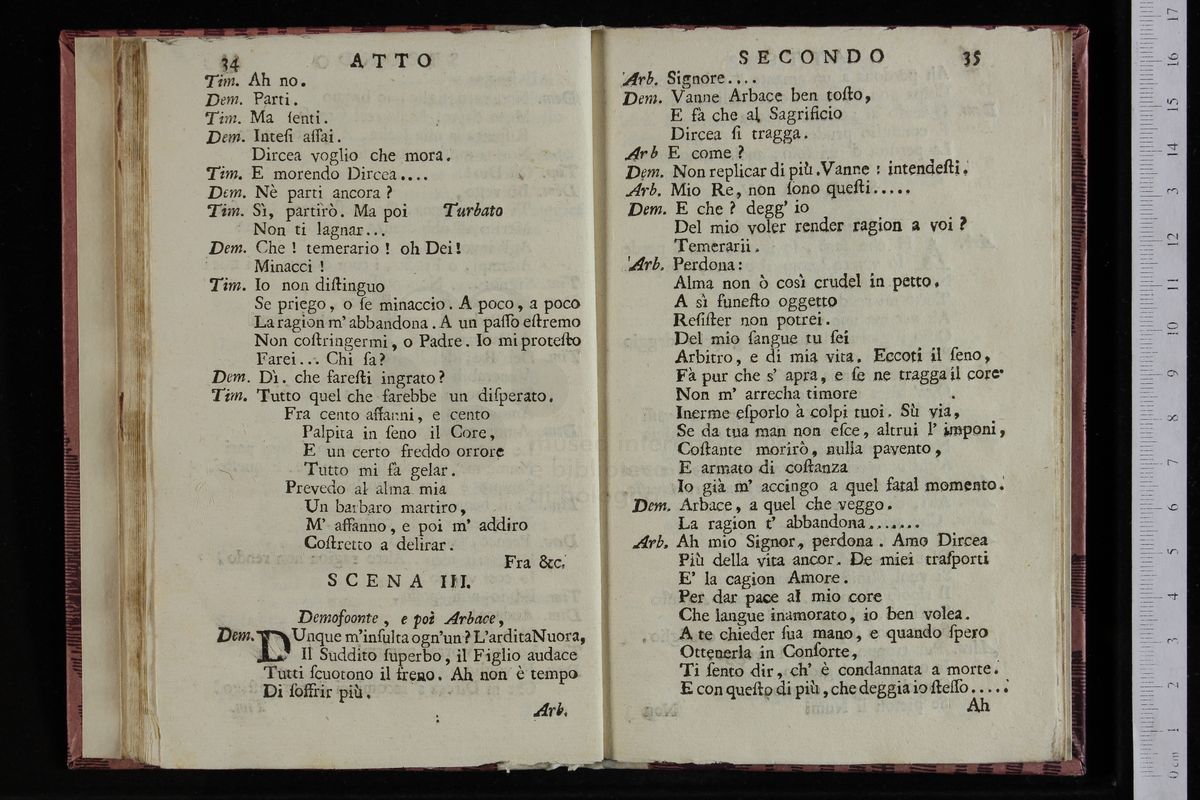 34 ATTO
Tim. Ah no.
Dem. Parti.
Tim. Ma ſenti.
Dem. Inteſi aſſai.
Dircea voglio che mora.
Tim. E morendo Dircea....
Dem. Nè parti ancora ?
Tim. Sì, partirò. Ma poi Turbato
Non ti lagnar...
Dem. Che ! temerario ! oh Dei !
Minacci !
Tim. Io non diſtinguo
Se priego, o ſe minaccio. A poco, a poco
La ragion m' abbandona. A un paſſo eſtremo
Non coſtringermi, o Padre. Io mi proteſto
Farei... Chi ſa?
Dem. Dì. che fareſti ingrato?
Tim. Tutto quel che farebbe un diſperato.
Fra cento affanni, e cento
Palpita in ſeno il Core,
E un certo freddo orrore
Tutto mi fà gelar.
Prevedo al alma mia
Un barbaro martiro,
M' affanno, e poi m' addiro
Coſtretto a delirar.
Fra &c.
SCENA III.
Demofoonte, e poi Arbace,
Dem. DUnque m'inſulta ogn'un? L'ardita Nuora,
Il Suddito ſuperbo, il Figlio audace
Tutti ſcuotono il freno. Ah non è tempo
Di ſoffrir più.
Arb.
SECONDO 35
Arb. Signore....
Dem. Vanne Arbace ben toſto,
E fà che al Sagrificio
Dircea ſi tragga.
Arb E come ?
Dem. Non replicar di più. Vanne : intendeſti.
Arb. Mio Re, non ſono queſti.....
Dem. E che ? degg' io
Del mio voler render ragion a voi ?
Temerarii.
Arb. Perdona:
Alma non ò così crudel in petto.
A sì funeſto oggetto
Reſiſter non potrei.
Del mio ſangue tu ſei
Arbitro, e di mia vita. Eccoti il ſeno,
Fà pur che s' apra, e ſe ne tragga il core
Non m' arrecha timore
Inerme eſporlo à colpi tuoi. Sù via,
Se da tua man non eſce, altrui l' imponi,
Coſtante morirò, nulla pavento,
E armato di coſtanza
Io già m' accingo a quel fatal momento.
Dem. Arbace, a quel che veggo.
La ragion t' abbandona.......
Arb. Ah mio Signor, perdona. Amo Dircea
Più della vita ancor. De miei traſporti
E' la cagion Amore.
Per dar pace al mio core
Che langue inamorato, io ben volea.
A te chieder ſua mano, e quando ſpero
Ottenerla in Conſorte,
Ti ſento dir, ch' è condannata a morte.
E con queſto di più, che deggia io ſteſſo.....
Ah
0 cm 1 2 3 4 5 6 7 8 9 10 11 12 13 14 15 16 17